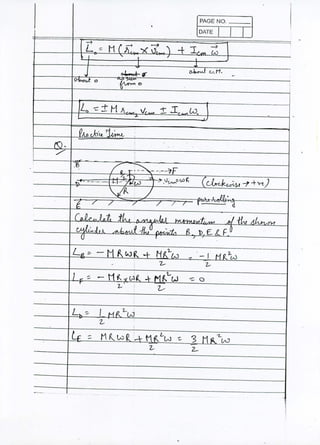 PAGE NO.
DATE
L⃗₀ = M (r⃗cm × v⃗cm) + Icm ω⃗
about o from o about c.M.
L₀ = ± M rcm⊥ Vcm ± Icm ω
Practice Time
Q.
B
F
D M ω Vcm = ωR (clockwise → +ve)
R
E pure rolling
Calculate the angular momentum of the shown
cylinder about the points B, D, E & F.
LB = - MRωR + MR²ω/2 = -1/2 MR²ω
LF = - MR/2 × ωR + MR²ω/2 = 0
LD = 1/2 MR²ω
LE = MRωR + MR²ω/2 = 3/2 MR²ω